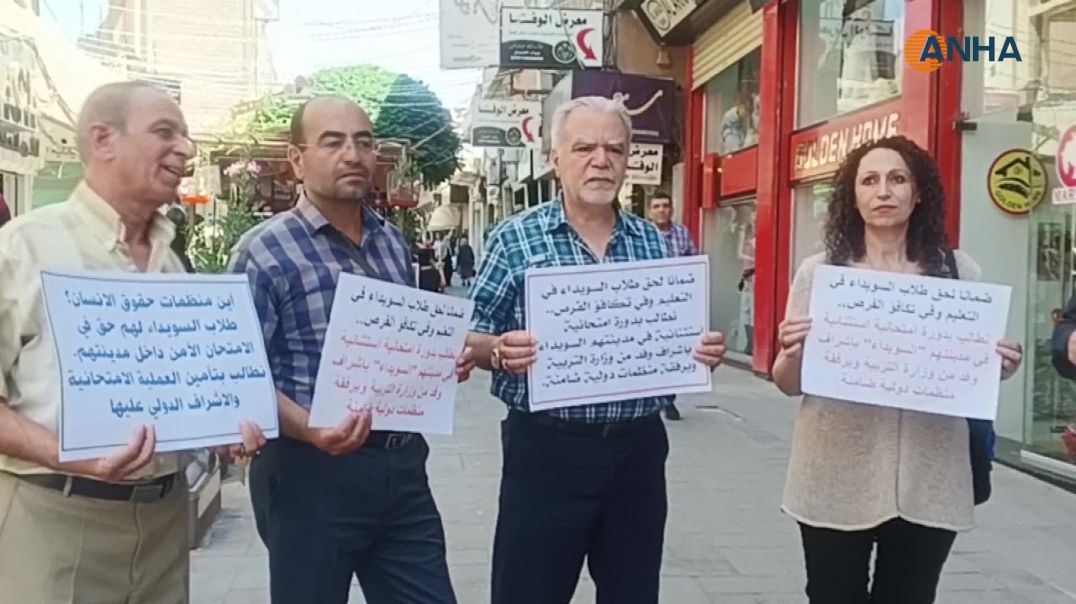 ANHA
معرض الوفتا
معرض الوفتا
معرض الوفتا
GOLDEN HOME
اين منظمات حقوق الانسان؟
طلاب السويداء لهم حق في
الامتحان الآمن داخل مدينتهم.
نطالب بتأمين العملية الامتحانية
والاشراف الدولي عليها
ضمانا لحق طلاب السويداء في
التعليم وفي تكافؤ الفرص..
نطالب بدورة امتحانية استثنائية
في مدينتهم "السويداء" باشراف
وفد من وزارة التربية وبرفقة
منظمات دولية ضامنة
ضمانا لحق طلاب السويداء في
التعليم وفي تكافؤ الفرص..
نطالب بدورة امتحانية
استثنائية في مدينتهم السويداء
باشراف وفد من وزارة التربية،
وبرفقة منظمات دولية ضامنة.
ضمانا لحق طلاب السويداء في
التعليم وفي تكافؤ الفرص..
نطالب بدورة امتحانية استثنائية
في مدينتهم "السويداء" باشراف
وفد من وزارة التربية وبرفقة
منظمات دولية ضامنة